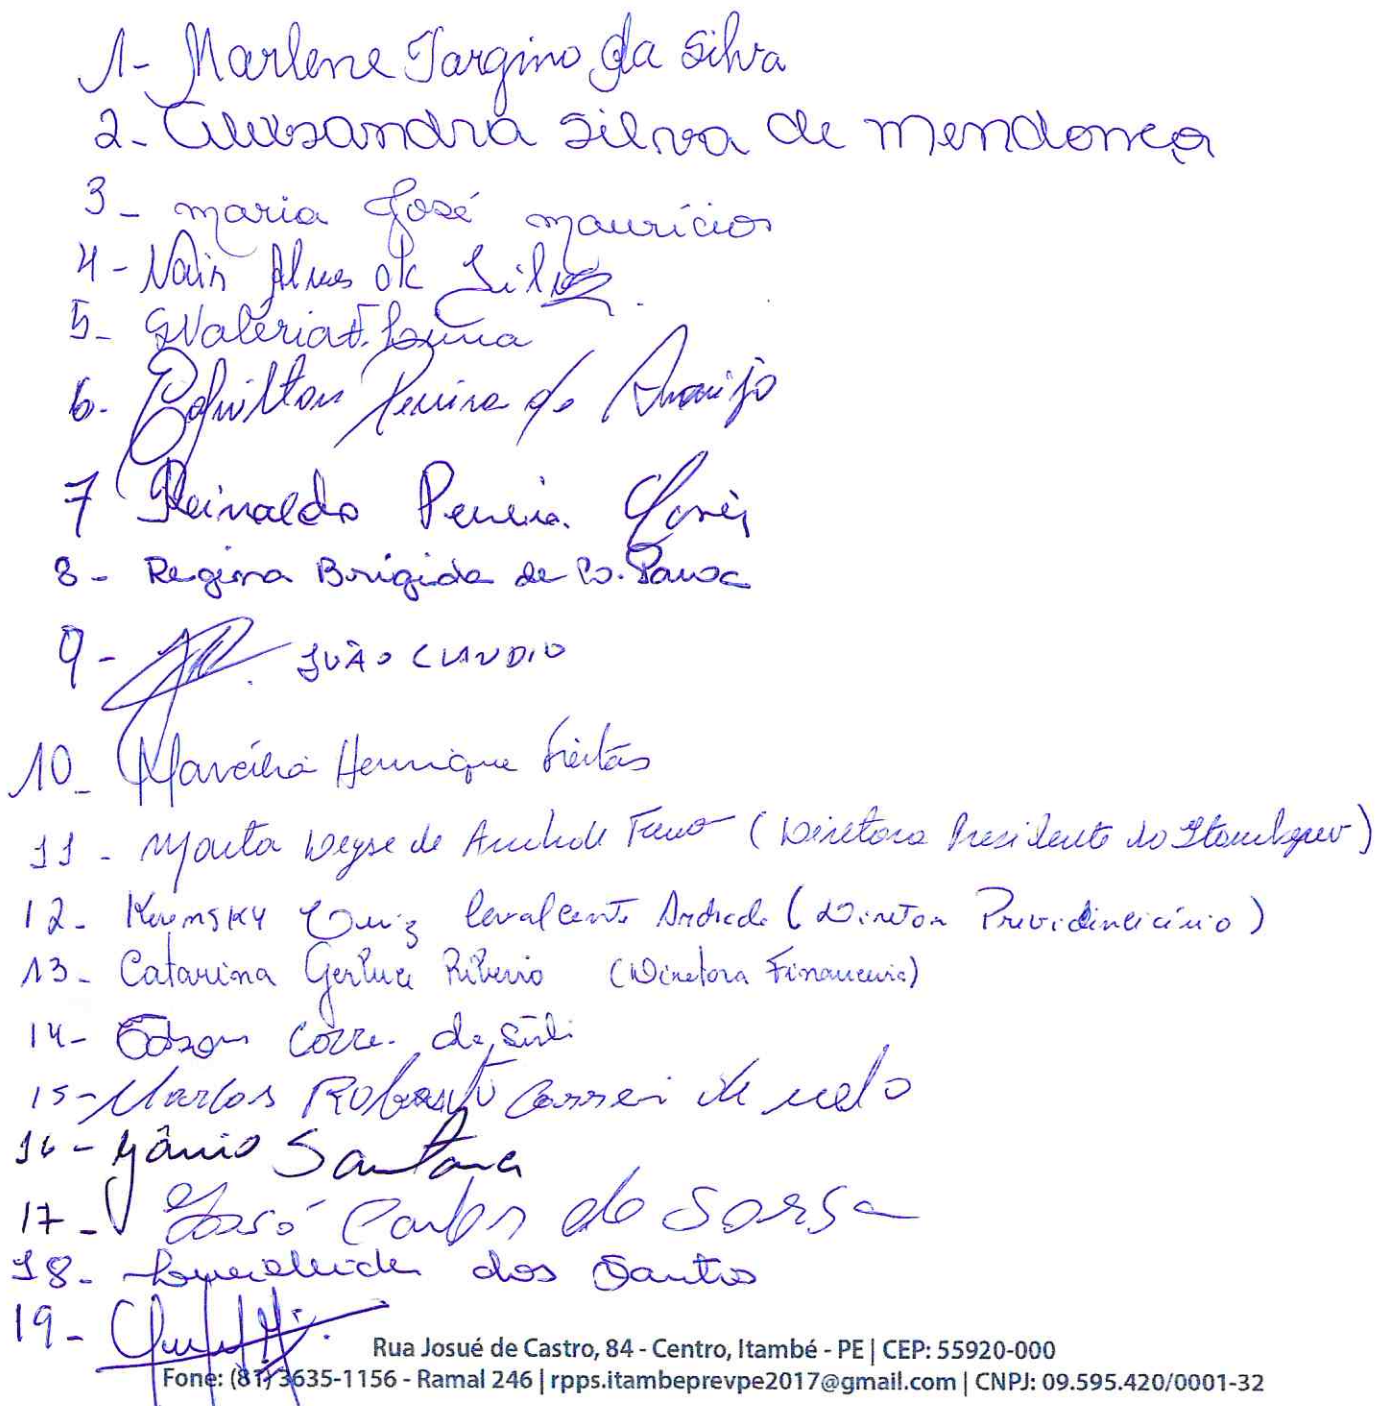 1- Marlene Targino da Silva
2- Alexsandra Silva de Mendonça
3- maria José maurícios
4- Nair Alves de Silva
5- Valéria F. Luna
6- Pereira de Araujo
7 Reinaldo Pereira
8- Regina Brigida de
9- JOÃO CLAUDIO
10- Henrique Freitas
11- Marta Weyse de Andrade (Diretora Presidente do Itambéprev)
12- Luiz Cavalcante Andrade (Diretor Previdenciário)
13- Catarina Ribeiro (Diretora Financeira)
14- Edson
15- Marlos Roberto Correi de melo
16- Jânio Santana
17- José Carlos de
18- dos Santos
19-
Rua Josué de Castro, 84 - Centro, Itambé - PE | CEP: 55920-000
Fone: (81) 3635-1156 - Ramal 246 | rpps.itambeprevpe2017@gmail.com | CNPJ: 09.595.420/0001-32